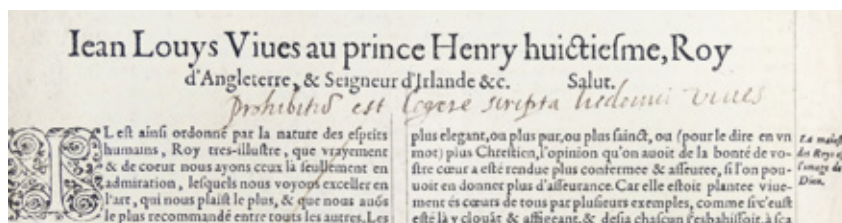 Iean Louys Viues au prince Henry huictiesme, Roy
d'Angleterre, & Seigneur d'Irlande &c. Salut.
prohibitũ est legere scripta ludovici vives
IL est ainsi ordonné par la nature des esprits
humains, Roy tres-illustre, que vrayement
& de coeur nous ayons ceux là seullement en
admiration, lesquels nous voyons exceller en
l'art, qui nous plaist le plus, & que nous auõs
le plus recommandé entre touts les autres. Les
plus elegant, ou plus pur, ou plus sainct, ou (pour le dire en vn
mot) plus Chrestien, l'opinion qu'on auoit de la bonté de vo-
stre cœur a esté rendue plus confermee & asseuree, si l'on pou-
uoit en donner plus d'asseurance. Car elle estoit plantee viue-
ment és cœurs de tous par plusieurs exemples, comme si c'eust
esté là y clouât & affigeant, & desia chascun
La maiest
des Roys e
l'image de
Dieu.